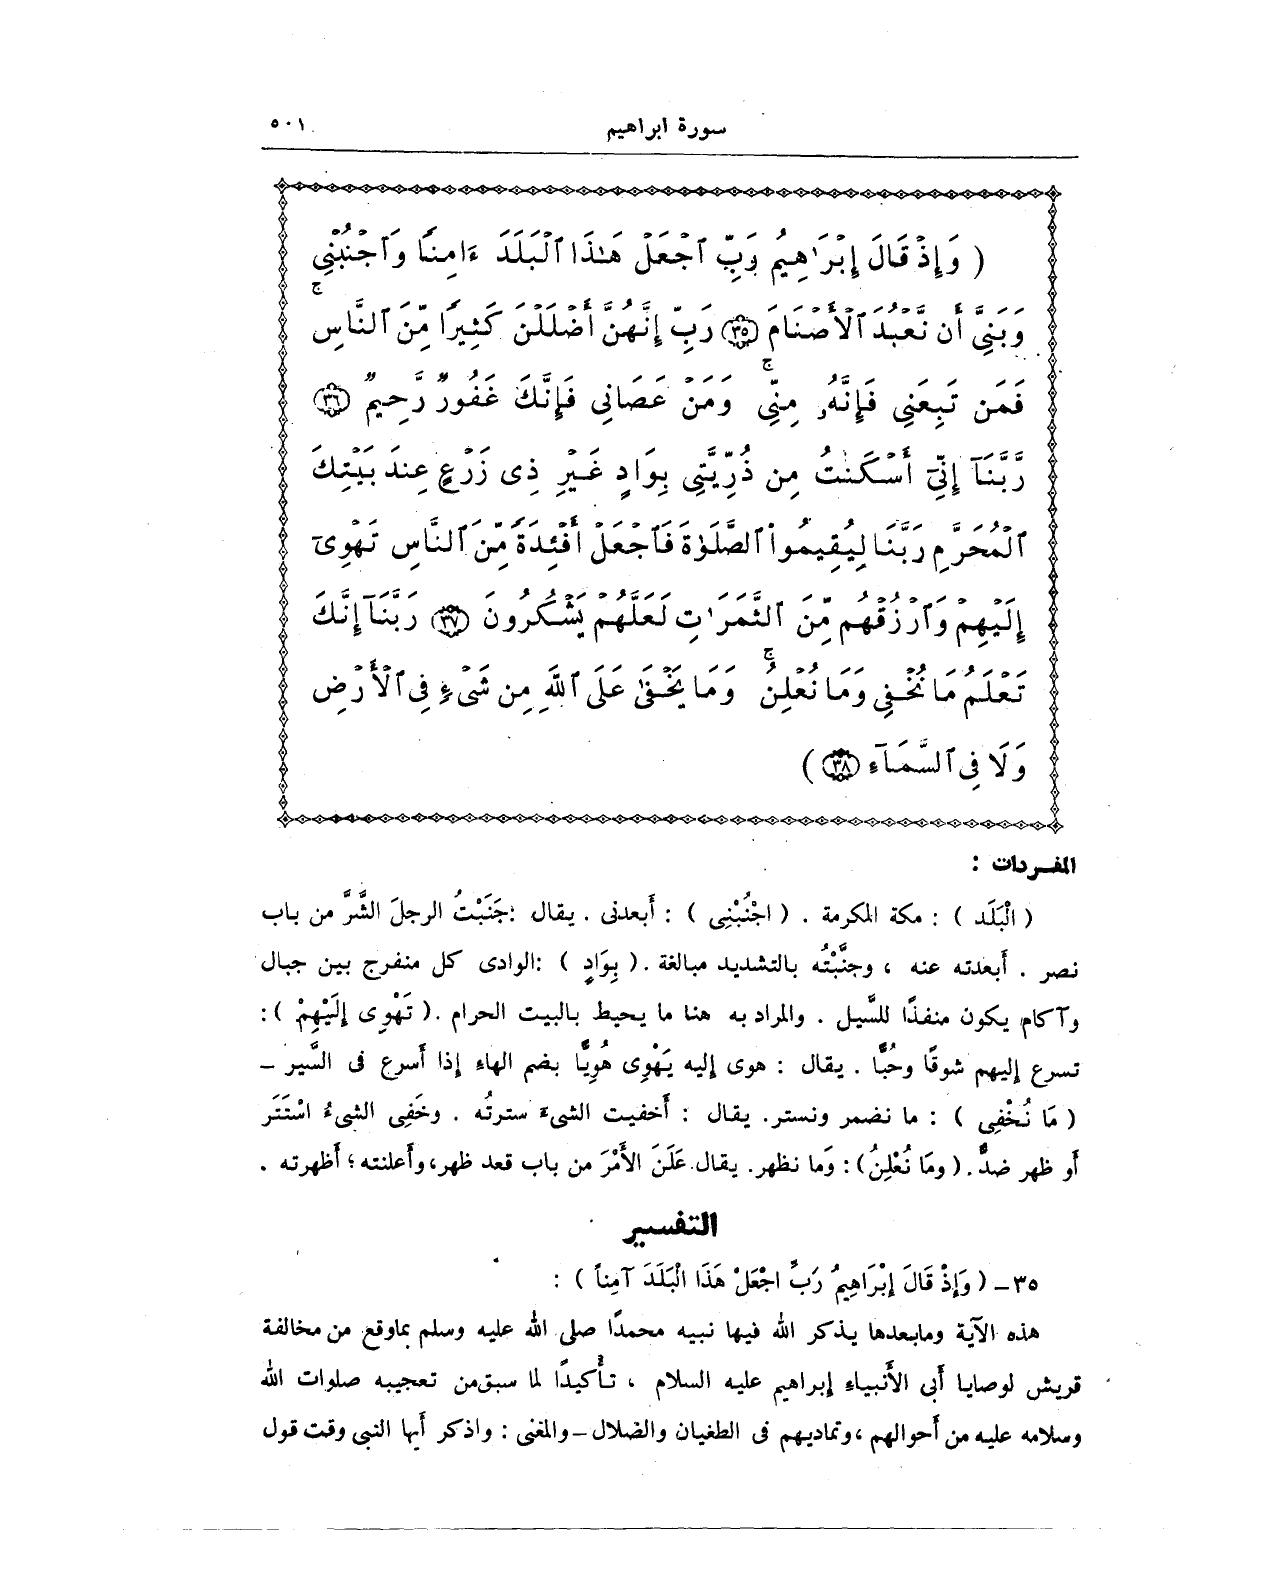 سورة ابراهيم
٥٠١
( وَإِذْ قَالَ إِبْرَٰهِيمُ رَبِّ ٱجْعَلْ هَـٰذَا ٱلْبَلَدَ ءَامِنًا وَٱجْنُبْنِي
وَبَنِيَّ أَن نَّعْبُدَ ٱلْأَصْنَامَ ٣٥ رَبِّ إِنَّهُنَّ أَضْلَلْنَ كَثِيرًا مِّنَ ٱلنَّاسِ ۚ
فَمَن تَبِعَنِي فَإِنَّهُۥ مِنِّي ۚ وَمَنْ عَصَانِي فَإِنَّكَ غَفُورٌ رَّحِيمٌ ٣٦
رَّبَّنَآ إِنِّيٓ أَسْكَنتُ مِن ذُرِّيَّتِي بِوَادٍ غَيْرِ ذِي زَرْعٍ عِندَ بَيْتِكَ
ٱلْمُحَرَّمِ رَبَّنَا لِيُقِيمُوا۟ ٱلصَّلَوٰةَ فَٱجْعَلْ أَفْئِدَةً مِّنَ ٱلنَّاسِ تَهْوِيٓ
إِلَيْهِمْ وَٱرْزُقْهُم مِّنَ ٱلثَّمَرَٰتِ لَعَلَّهُمْ يَشْكُرُونَ ٣٧ رَبَّنَآ إِنَّكَ
تَعْلَمُ مَا نُخْفِي وَمَا نُعْلِنُ ۚ وَمَا يَخْفَىٰ عَلَى ٱللَّهِ مِن شَيْءٍ فِي ٱلْأَرْضِ
وَلَا فِي ٱلسَّمَآءِ ٣٨ )
المفـردات :
( الْبَلَد ) : مكة المكرمة . ( اجْنُبْنِى ) : أبعدنى . يقال :جَنَبْتُ الرجلَ الشَّرَّ من باب
نصر . أبعدته عنه ، وجنَّبْتُه بالتشديد مبالغة .( بِوَادٍ ) :الوادى كل منفرج بين جبال
وآكام يكون منفذًا للسَّيل . والمراد به هنا ما يحيط بالبيت الحرام .( تَهْوِى إِلَيْهِمْ ):
تسرع إليهم شوقًا وحُبًّا . يقال : هوى إليه يَهْوِى هُوِيًّا بضم الهاء إذا أسرع فى السَّير –
( مَا نُخْفِى ) : ما نضمر ونستر. يقال : أخفيت الشىءَ سترتُه . وخَفِى الشىءُ اسْتَتَر
أو ظهر ضدٌّ .( ومَا نُعْلِنُ): وَما نظهر. يقال عَلَنَ الأَمْرَ من باب قعد ظهر، وأعلنته؛ أظهرته .
التفسير
٣٥– ( وَإِذْ قَالَ إِبْرَاهِيمُ رَبِّ اجْعَلْ هَذَا الْبَلَدَ آمِناً ) :
هذه الآية ومابعدها يذكر الله فيها نبيه محمدًا صلى الله عليه وسلم بماوقع من مخالفة
قريش لوصايا أبى الأنبياء إبراهيم عليه السلام ، تأكيدًا لما سبق من تعجيبه صلوات الله
وسلامه عليه من أحوالهم ،وتماديهم فى الطغيان والضلال –والمغنى : واذكر أيها النبى وقت قول